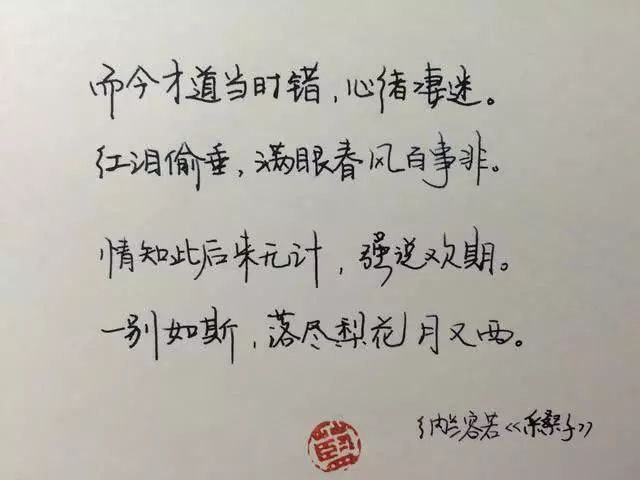 而今才道当时错，心绪凄迷。
红泪偷垂，满眼春风百事非。
情知此后来无计，强说欢期。
一别如斯，落尽梨花月又西。
纳兰容若《采桑子》